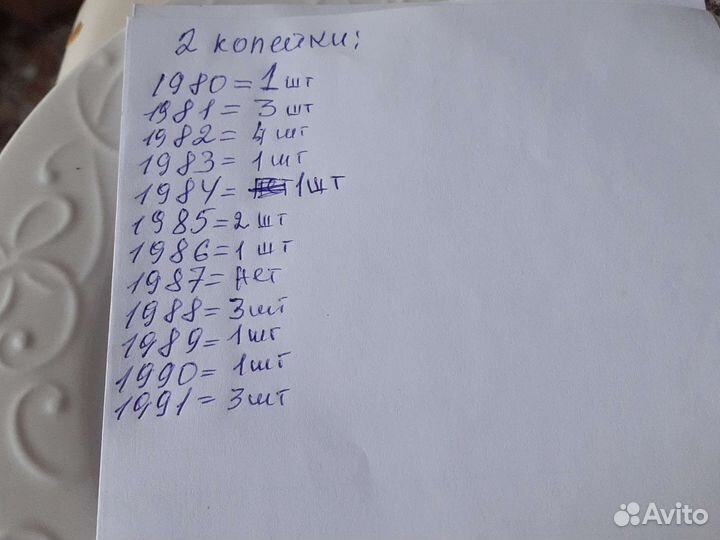 2 копейки:
1980 = 1 шт
1981 = 3 шт
1982 = 4 шт
1983 = 1 шт
1984 = 1 шт
1985 = 2 шт
1986 = 1 шт
1987 = нет
1988 = 3 шт
1989 = 1 шт
1990 = 1 шт
1991 = 3 шт
Avito